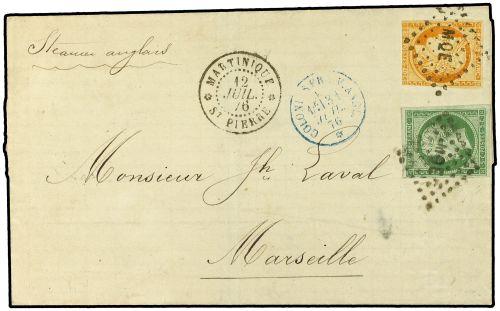 Steamer anglais
MARTINIQUE
12
JUIL.
76
ST PIERRE
COLON
76
MQE
MQE
Monsieur Jh Laval
Marseille